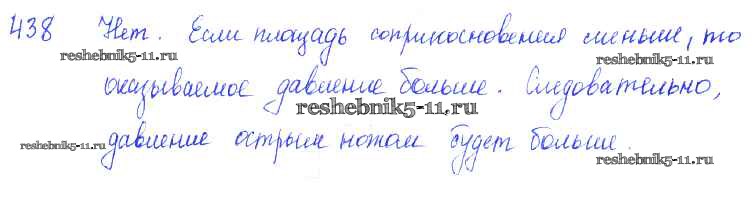 438 Нет. Если площадь соприкосновения меньше, то
reshebnik5-11.ru
reshebnik5-11.ru
оказываемое давление больше. Следовательно,
reshebnik5-11.ru
давление острым ножом будет больше.
reshebnik5-11.ru
reshebnik5-11.ru